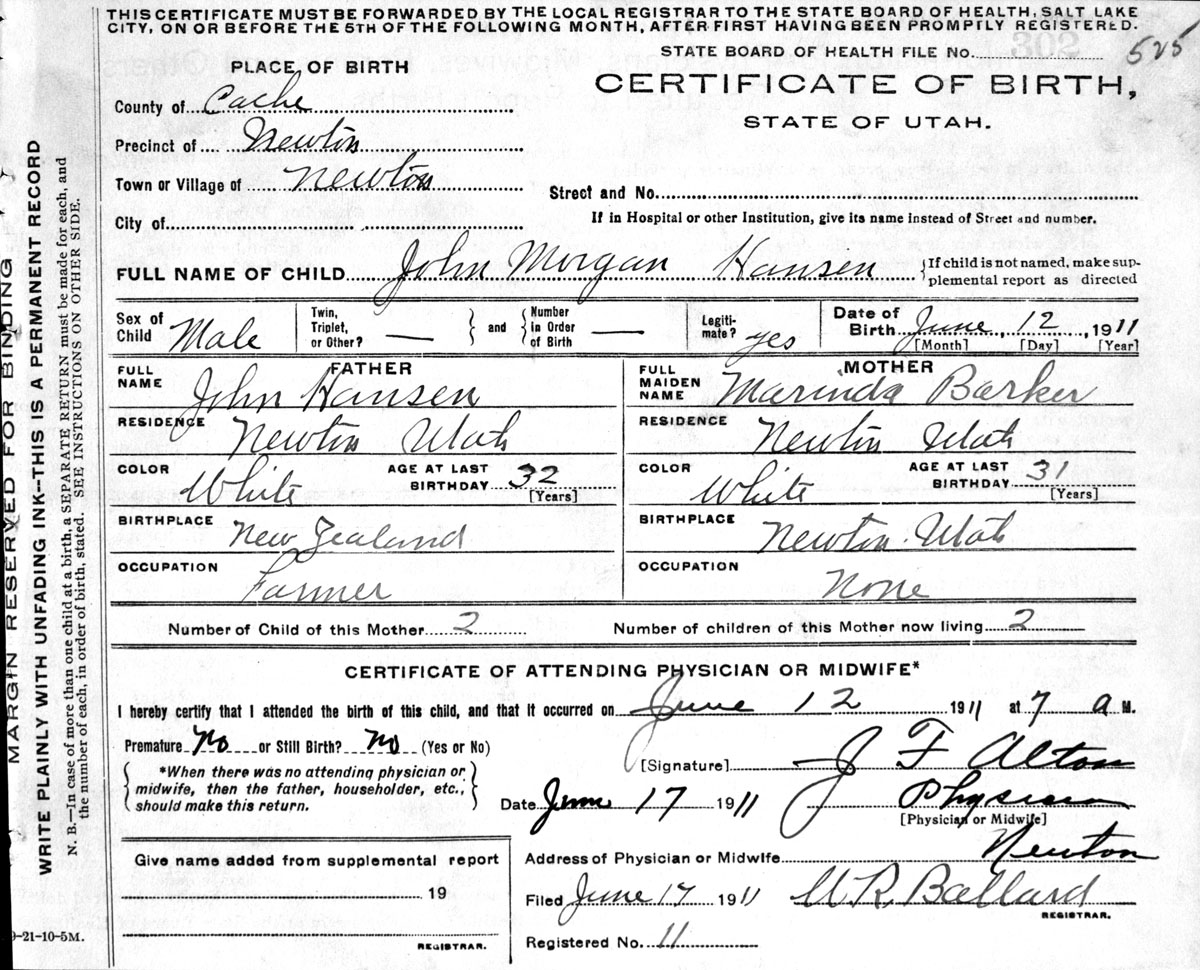 THIS CERTIFICATE MUST BE FORWARDED BY THE LOCAL REGISTRAR TO THE STATE BOARD OF HEALTH, SALT LAKE
CITY, ON OR BEFORE THE 5TH OF THE FOLLOWING MONTH, AFTER FIRST HAVING BEEN PROMPTLY REGISTERED.
STATE BOARD OF HEALTH FILE NO. 302 525
PLACE OF BIRTH
CERTIFICATE OF BIRTH,
STATE OF UTAH.
County of Cache
Precinct of Newton
Town or Village of Newton
Street and No.
City of
If in Hospital or other Institution, give its name instead of Street and number.
FULL NAME OF CHILD John Morgan Hansen {If child is not named, make sup-
plemental report as directed
Sex of Child Male
Twin, Triplet, or Other? — and Number in Order of Birth —
Legiti-mate? yes
Date of Birth June 12, 1911
[Month] [Day] [Year]
FATHER
FULL NAME John Hansen
RESIDENCE Newton Utah
COLOR White AGE AT LAST BIRTHDAY 32 [Years]
BIRTHPLACE New Zealand
OCCUPATION Farmer
MOTHER
FULL MAIDEN NAME Marinda Barker
RESIDENCE Newton Utah
COLOR White AGE AT LAST BIRTHDAY 31 [Years]
BIRTHPLACE Newton Utah
OCCUPATION None
Number of Child of this Mother 2 Number of children of this Mother now living 2
CERTIFICATE OF ATTENDING PHYSICIAN OR MIDWIFE*
I hereby certify that I attended the birth of this child, and that it occurred on June 12 1911 at 7 a M.
Premature No or Still Birth? No (Yes or No)
*When there was no attending physician or
midwife, then the father, householder, etc.,
should make this return.
[Signature] J F Alton
Date June 17 1911 Physician
[Physician or Midwife]
Give name added from supplemental report
19
REGISTRAR.
Address of Physician or Midwife Newton
Filed June 17 1911 M. R. Ballard
REGISTRAR.
Registered No. 11
9-21-10-5M.
MARGIN RESERVED FOR BINDING
WRITE PLAINLY WITH UNFADING INK--THIS IS A PERMANENT RECORD
N. B.—In case of more than one child at a birth, a SEPARATE RETURN must be made for each, and
the number of each, in order of birth, stated. SEE INSTRUCTIONS ON OTHER SIDE.